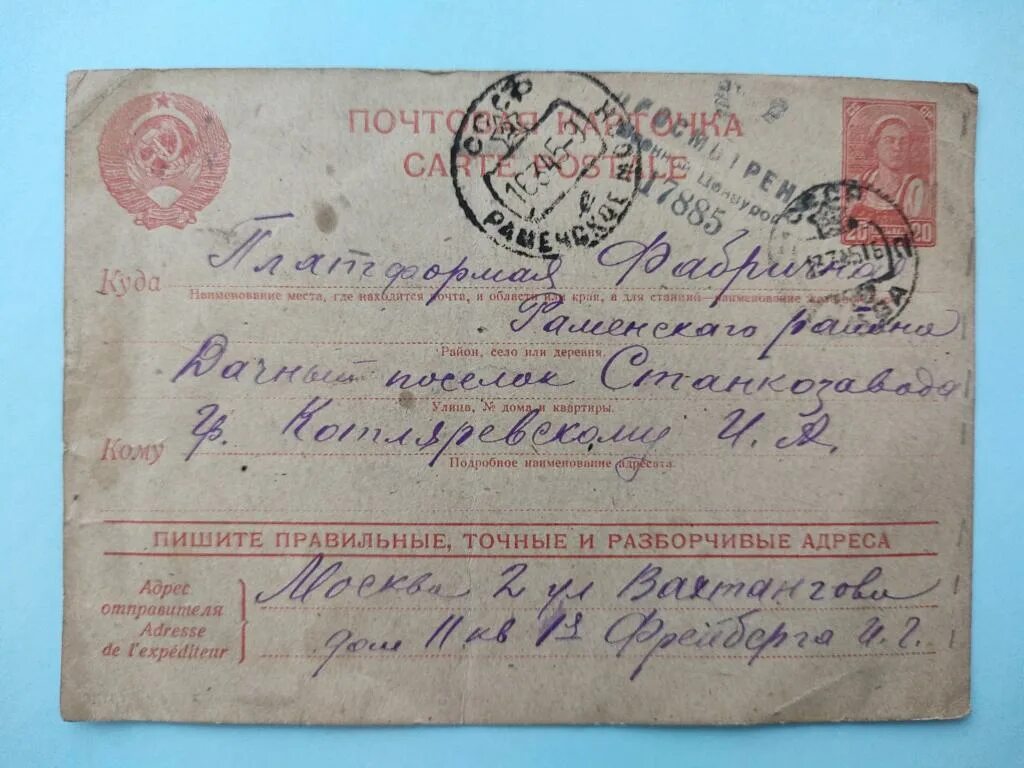 ПОЧТОВАЯ КАРТОЧКА
CARTE POSTALE
СССР
16345-9
РАМЕНСКОЕ МОСК
ПРОСМОТРЕНО
Военной Цензурой
17885
СССР
МОСКВА
20 20
Куда Платформая Фабричная
Наименование места, где находится почта, и области или края, а для станций наименование
Раменскаго района
Район, село или деревня.
Дачный поселок Станкозавода
Улица, № дома и квартиры.
Кому гр. Котляревскому И. А.
Подробное наименование адресата.
ПИШИТЕ ПРАВИЛЬНЫЕ, ТОЧНЫЕ И РАЗБОРЧИВЫЕ АДРЕСА
Адрес отправителя
Adresse de l'expéditeur
Москва 2 ул Вахтангова
дом 11 кв 19 Фрейберга И. Г.